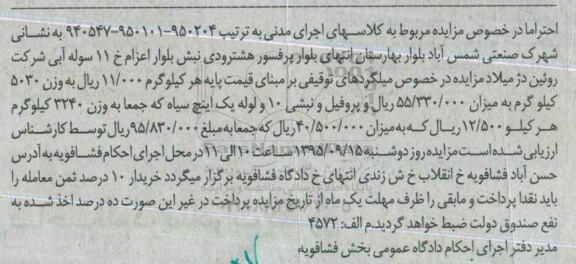 احتراما در خصوص مزایده مربوط به کلاسهای اجرای مدنی به ترتیب ۹۵۰۲۰۴-۹۵۰۱۰۱-۹۴۰۵۴۷ به نشانی
شهرک صنعتی شمس آباد بلوار بهارستان انتهای بلوار پرفسور هشترودی نبش بلوار اعزام خ ۱۱ سوله آبی شرکت
روئین دژ میلاد مزایده در خصوص میلگردهای توقیفی بر مبنای قیمت پایه هر کیلوگرم ۱۱/۰۰۰ ریال به وزن ۵۰۳۰
کیلو گرم به میزان ۵۵/۳۳۰/۰۰۰ ریال و پروفیل و نبشی ۱۰ و لوله یک اینچ سیاه که جمعا به وزن ۳۲۴۰ کیلوگرم
هر کیلو ۱۲/۵۰۰ ریال که به میزان ۴۰/۵۰۰/۰۰۰ ریال که جمعا به مبلغ ۹۵/۸۳۰/۰۰۰ ریال توسط کارشناس
ارزیابی شده است مزایده روز دوشنبه ۱۳۹۵/۰۹/۱۵ ساعت ۱۰ الی ۱۱ در محل اجرای احکام فشافویه به آدرس
حسن آباد فشافویه خ انقلاب خ ش زندی انتهای خ دادگاه فشافویه برگزار میگردد خریدار ۱۰ درصد ثمن معامله را
باید نقدا پرداخت و مابقی را ظرف مهلت یک ماه از تاریخ مزایده پرداخت در غیر این صورت ده درصد اخذ شده به
نفع صندوق دولت ضبط خواهد گردید.م الف: ۴۵۷۲
مدیر دفتر اجرای احکام دادگاه عمومی بخش فشافویه